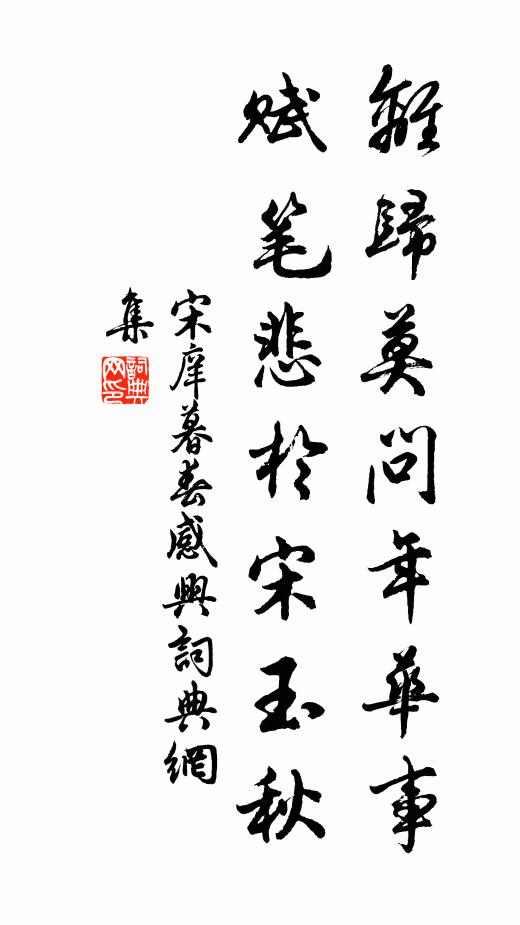 難歸莫問年華事
賦笔悲於宋玉秋
宋庠暮春感興詞典網
集
詞典
网印